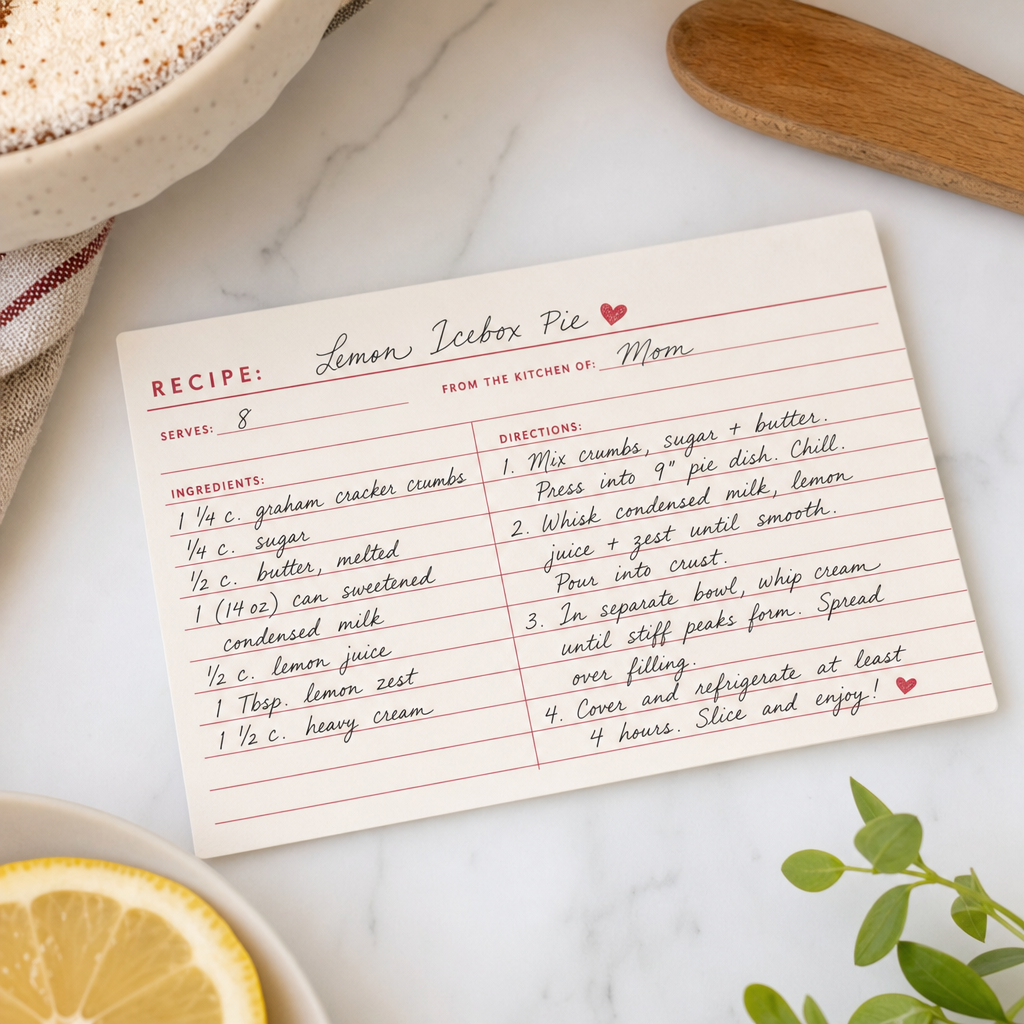 RECIPE: Lemon Icebox Pie ♥
FROM THE KITCHEN OF: Mom
SERVES: 8
INGREDIENTS:
1 1/4 c. graham cracker crumbs
1/4 c. sugar
1/2 c. butter, melted
1 (14 oz) can sweetened
condensed milk
1/2 c. lemon juice
1 Tbsp. lemon zest
1 1/2 c. heavy cream
DIRECTIONS:
1. Mix crumbs, sugar + butter.
Press into 9" pie dish. Chill.
2. Whisk condensed milk, lemon
juice + zest until smooth.
Pour into crust.
3. In separate bowl, whip cream
until stiff peaks form. Spread
over filling.
4. Cover and refrigerate at least
4 hours. Slice and enjoy! ♥